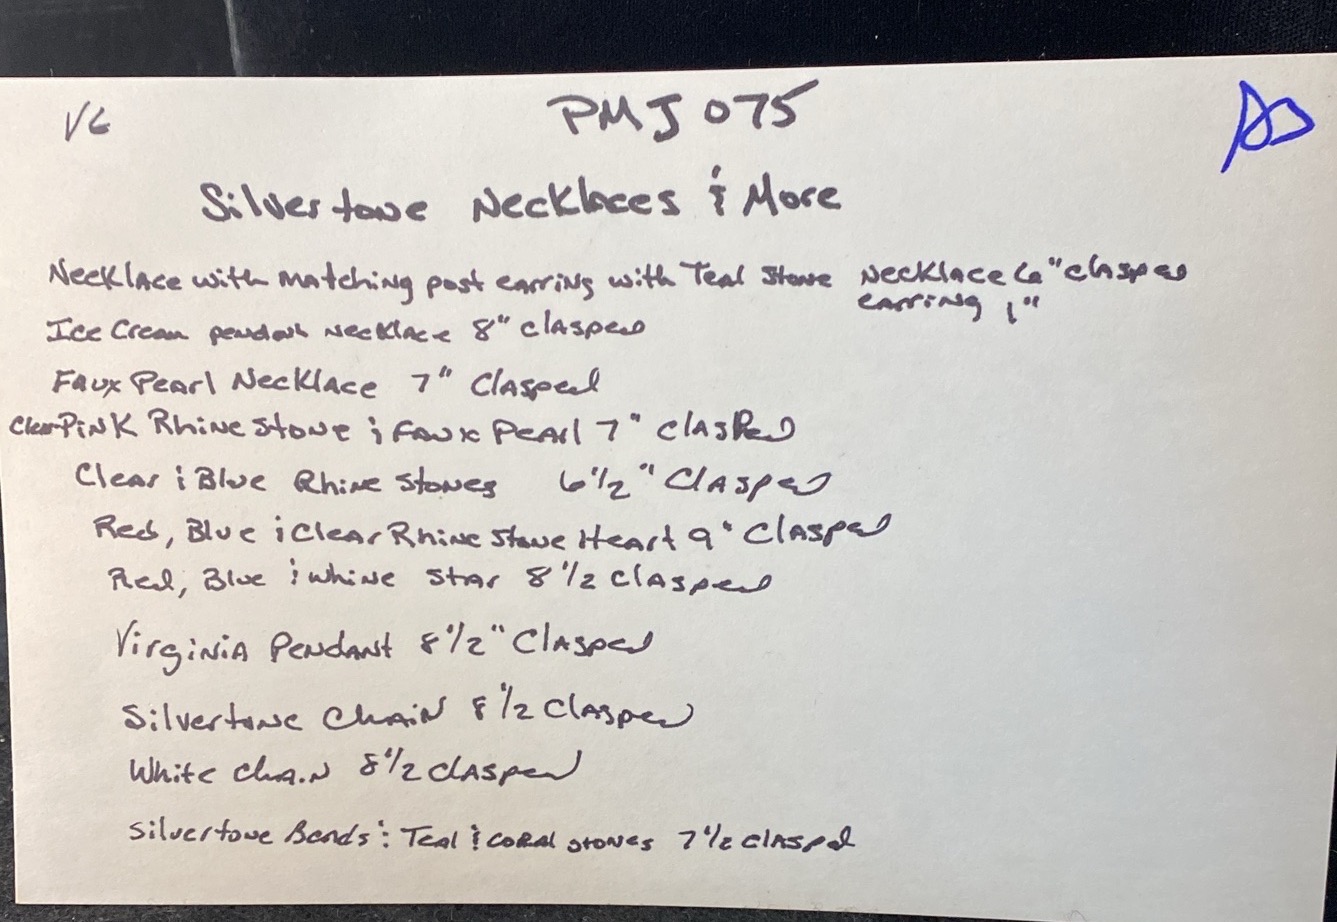 VG
PMJ 075
Silvertone Necklaces & More
Necklace with matching post earring with Teal Stone Necklace 6" clasped
earring 1"
Ice Cream pendant necklace 8" clasped
Faux Pearl Necklace 7" Clasped
Clear Pink Rhine Stone & Faux Pearl 7" Clasped
Clear & Blue Rhine Stones 6 1/2" Clasped
Red, Blue & Clear Rhine Stone Heart 9" Clasped
Red, Blue & White Star 8 1/2 Clasped
Virginia Pendant 8 1/2" Clasped
Silvertone Chain 8 1/2 Clasped
White Chain 8 1/2 Clasped
Silvertone Beads & Teal & Coral stones 7 1/2 clasped